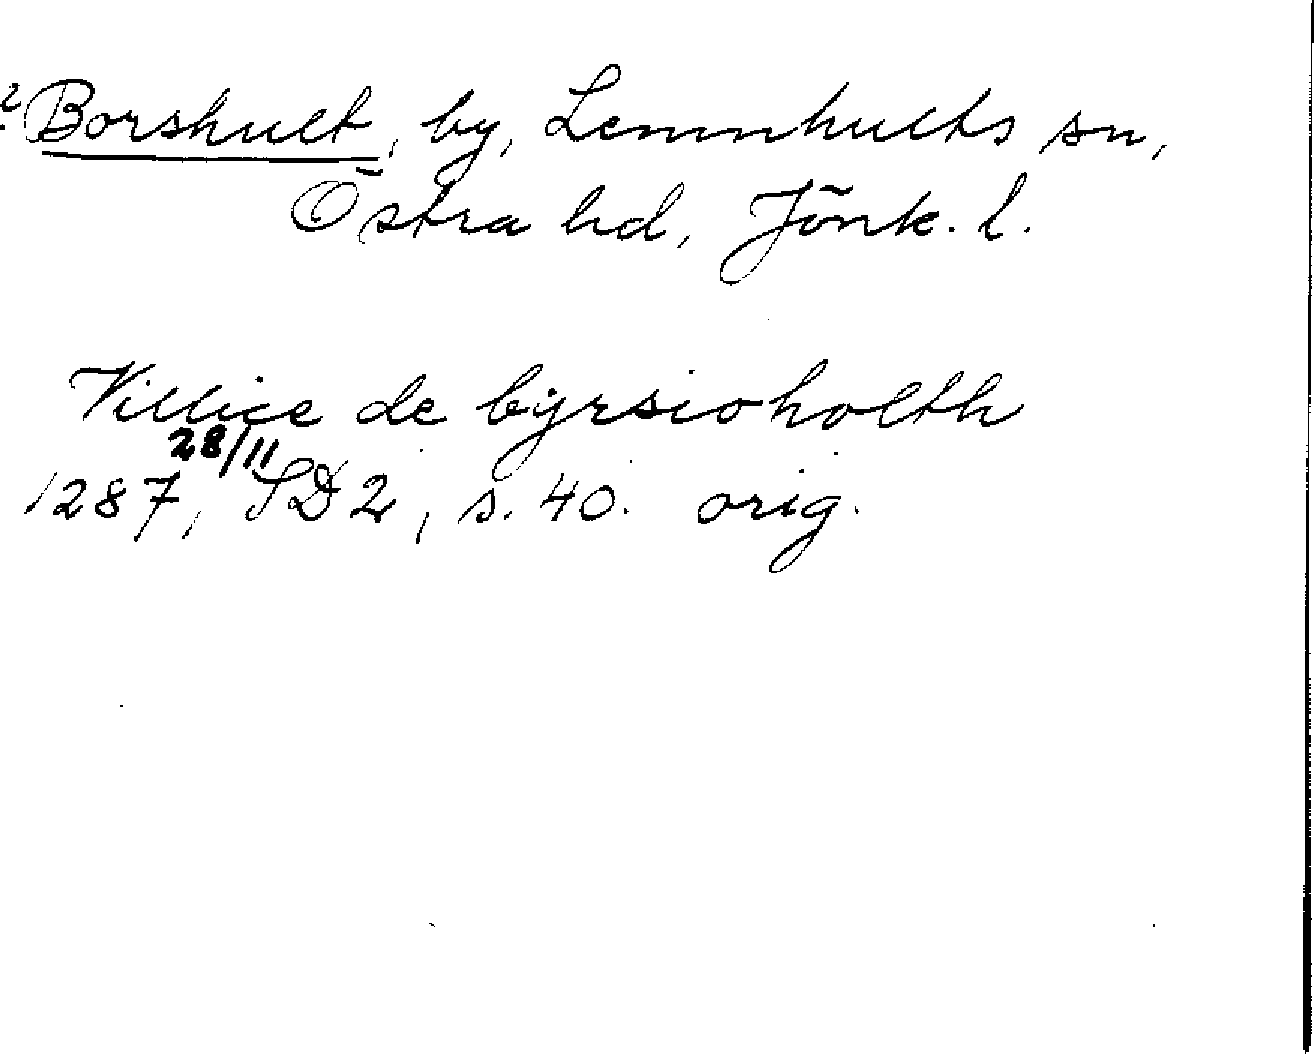 ? Borshult, by, Lemnhults sn,
Östra hd, Jönk. l.
Villice de byrsioholth
28/11
1287, SD 2, s. 40. orig.